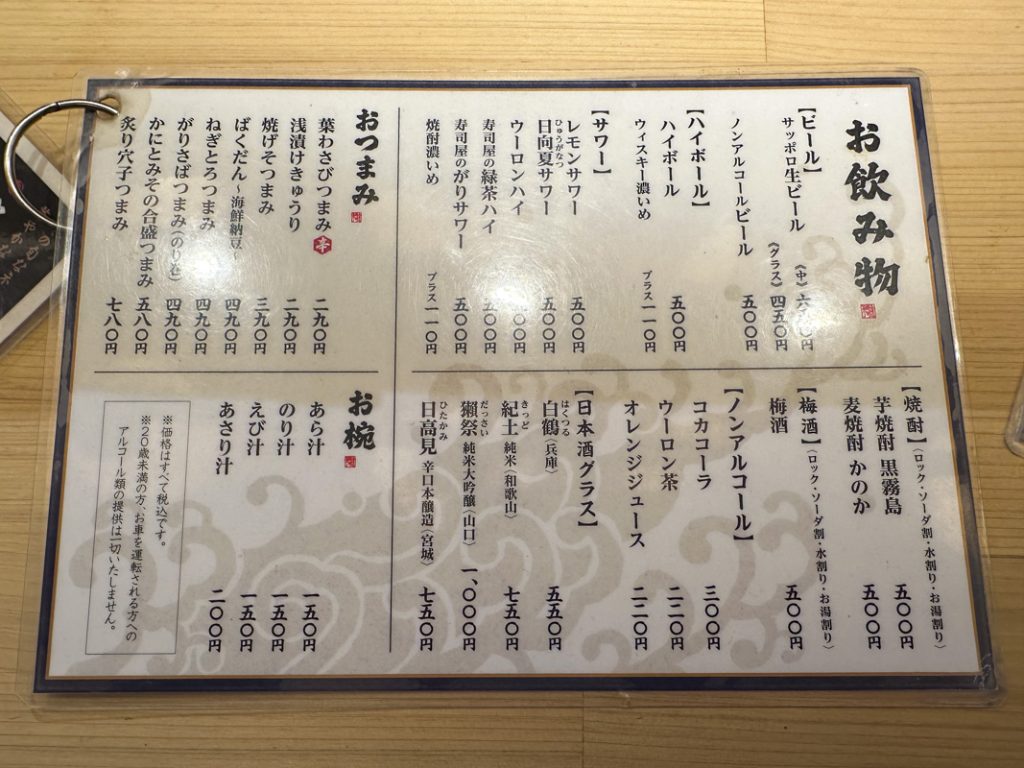 お飲み物
【ビール】
サッポロ生ビール
《中》六
〇円
《グラス》四五〇円
ノンアルコールビール 五〇〇円
【ハイボール】
ハイボール 五〇〇円
ウィスキー濃いめ プラス一一〇円
【サワー】
レモンサワー 五〇〇円
日向夏サワー 五〇〇円
ひゅうがなつ
ウーロンハイ
〇〇円
寿司屋の緑茶ハイ 五〇〇円
寿司屋のがりサワー 五〇〇円
焼酎濃いめ プラス一一〇円
おつまみ
葉わさびつまみ 辛 二九〇円
浅漬けきゅうり 二九〇円
焼げそつまみ 三九〇円
ばくだん~海鮮納豆~ 四九〇円
ねぎとろつまみ 四九〇円
がりさばつまみ(のり巻) 四九〇円
かにとみその合盛つまみ 五八〇円
炙り穴子つまみ 七八〇円
【焼酎】(ロック・ソーダ割・水割り・お湯割り)
芋焼酎 黒霧島 五〇〇円
麦焼酎 かのか 五〇〇円
【梅酒】(ロック・ソーダ割・水割り・お湯割り)
梅酒 五〇〇円
【ノンアルコール】
コカコーラ 三〇〇円
ウーロン茶 二二〇円
オレンジジュース 二二〇円
【日本酒グラス】
白鶴(兵庫) 五五〇円
はくつる
紀土 純米(和歌山) 七五〇円
きっど
獺祭 純米大吟醸(山口) 一、〇〇〇円
だっさい
日高見 辛口本醸造(宮城) 七五〇円
ひたかみ
お椀
あら汁 一五〇円
のり汁 一五〇円
えび汁 一五〇円
あさり汁 二〇〇円
※価格はすべて税込です。
※20歳未満の方、お車を運転される方への
アルコール類の提供は一切いたしません。